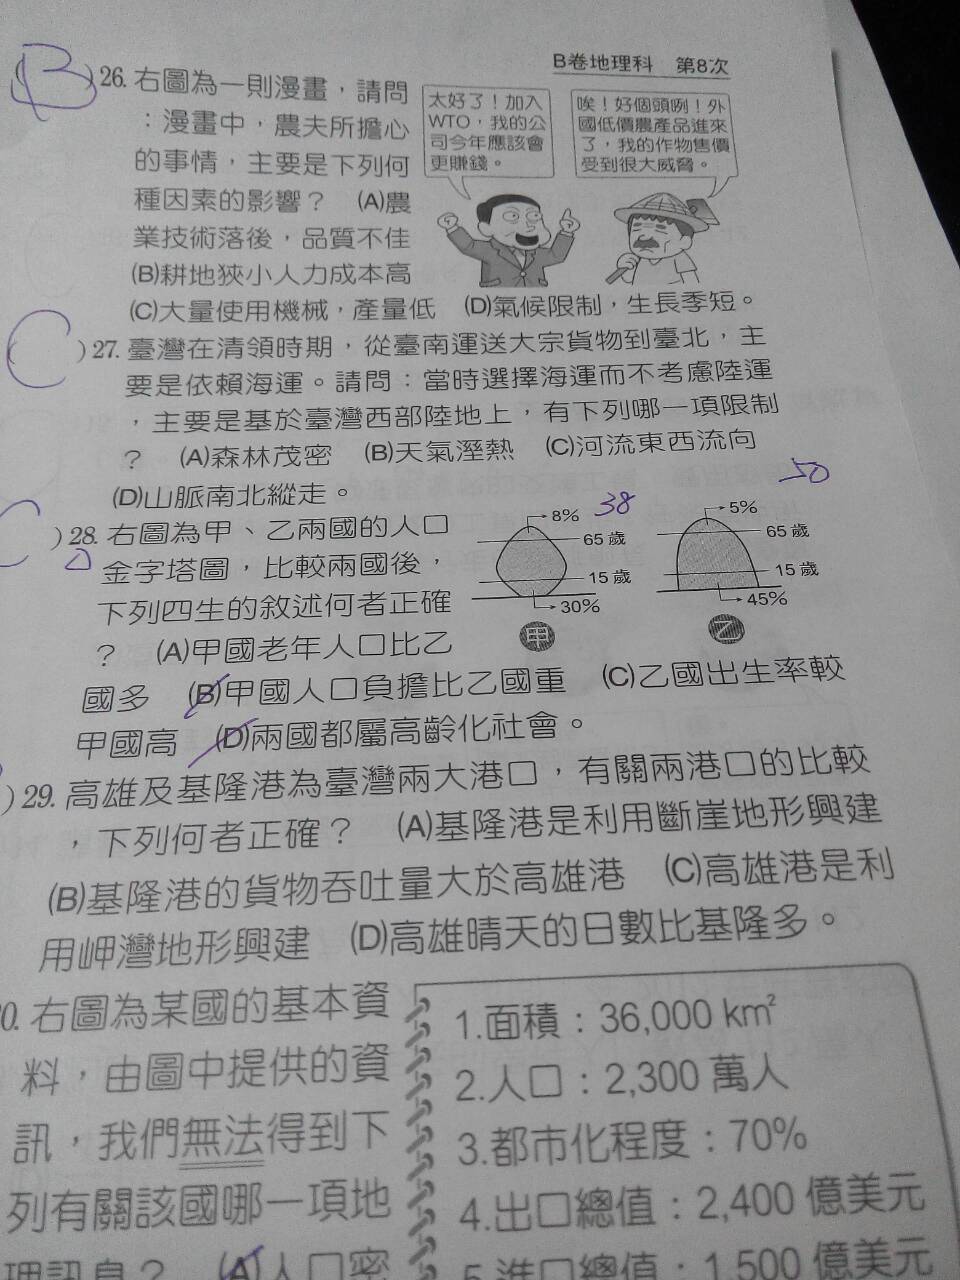 B卷地理科 第8次
(B)26. 右圖為一則漫畫，請問
：漫畫中，農夫所擔心
的事情，主要是下列何
種因素的影響？ (A)農
業技術落後，品質不佳
(B)耕地狹小人力成本高
(C)大量使用機械，產量低 (D)氣候限制，生長季短。
太好了！加入
WTO，我的公
司今年應該會
更賺錢。
唉！好個頭咧！外
國低價農產品進來
了，我的作物售價
受到很大威脅。
C )27. 臺灣在清領時期，從臺南運送大宗貨物到臺北，主
要是依賴海運。請問：當時選擇海運而不考慮陸運
，主要是基於臺灣西部陸地上，有下列哪一項限制
？ (A)森林茂密 (B)天氣溼熱 (C)河流東西流向
(D)山脈南北縱走。
C )28. 右圖為甲、乙兩國的人口
金字塔圖，比較兩國後，
下列四生的敘述何者正確
？ (A)甲國老年人口比乙
國多 (B)甲國人口負擔比乙國重 (C)乙國出生率較
甲國高 (D)兩國都屬高齡化社會。
8% 38
65歲
15歲
30%
甲
50
5%
65歲
15歲
45%
乙
)29. 高雄及基隆港為臺灣兩大港口，有關兩港口的比較
，下列何者正確？ (A)基隆港是利用斷崖地形興建
(B)基隆港的貨物吞吐量大於高雄港 (C)高雄港是利
用岬灣地形興建 (D)高雄晴天的日數比基隆多。
0. 右圖為某國的基本資
料，由圖中提供的資
訊，我們無法得到下
列有關該國哪一項地
理訊息？ (A)人口密
1.面積：36,000 km²
2.人口：2,300 萬人
3.都市化程度：70%
4.出口總值：2,400 億美元
5.進口總值：1,500 億美元